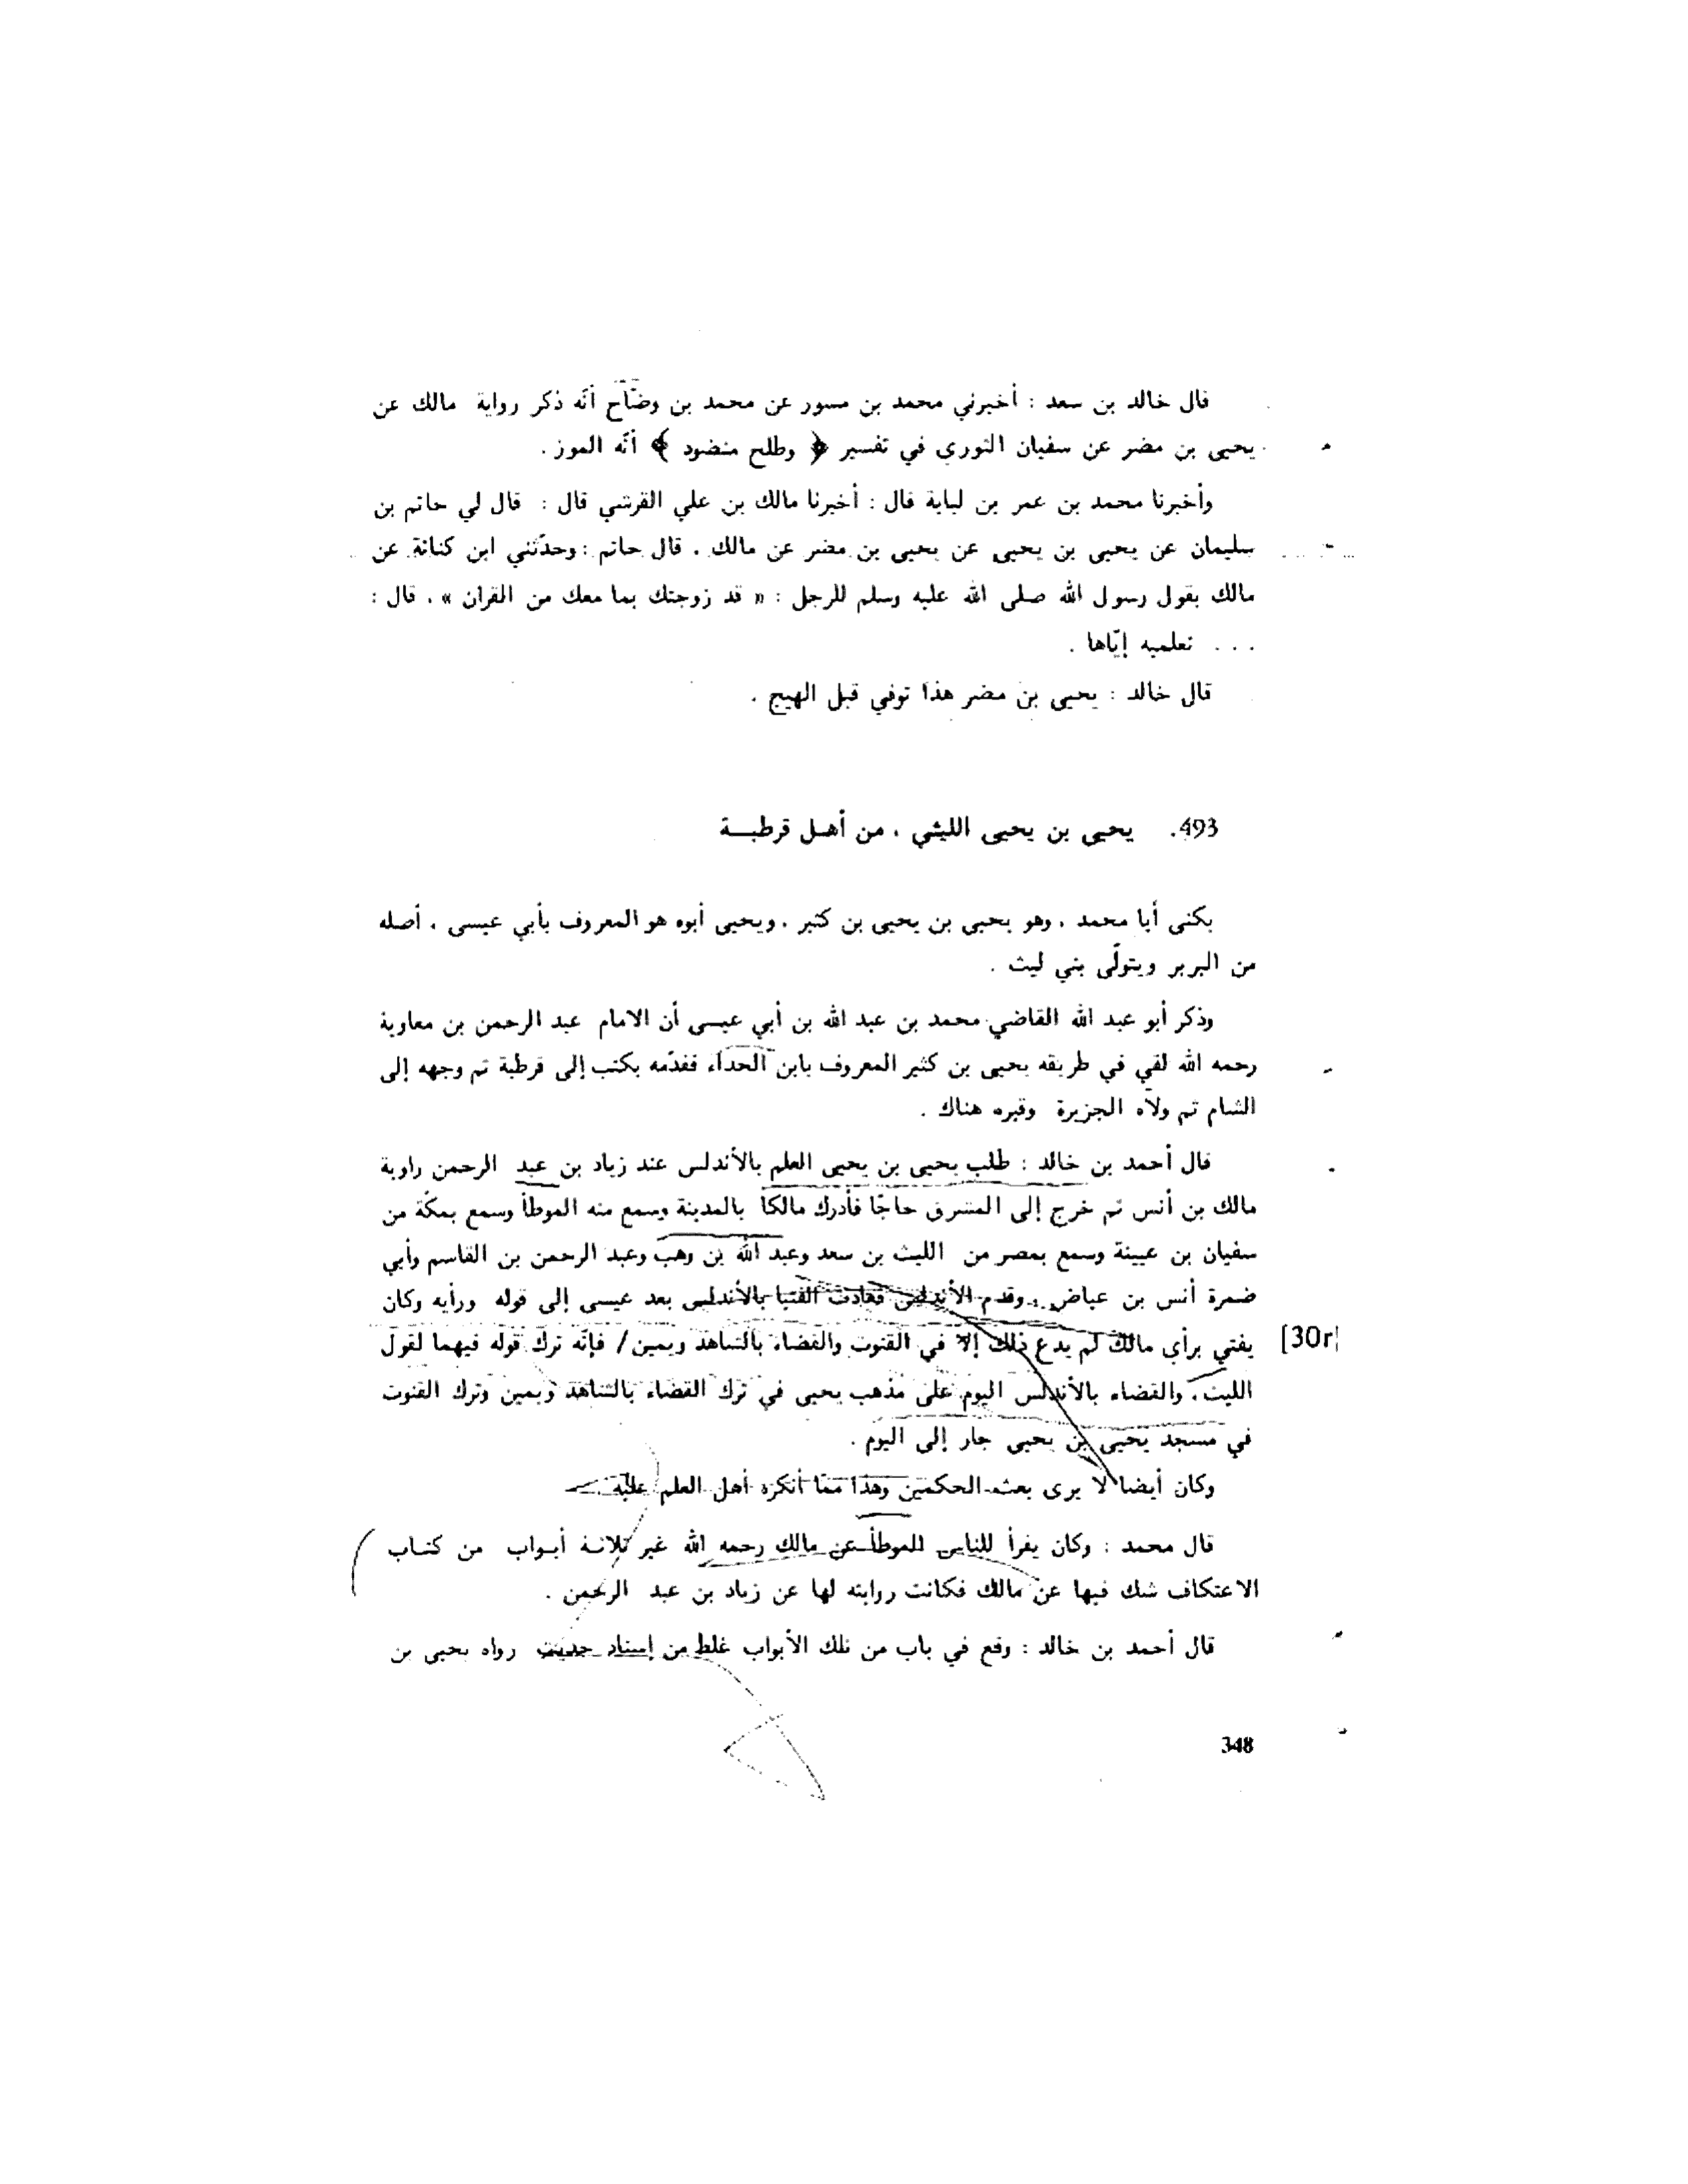 قال خالد بن سعد : أخبرني محمد بن مسور عن محمد بن وضّاح أنّه ذكر رواية مالك عن
يحيى بن مضر عن سفيان الثوري في تفسير ﴿ وطلح منضود ﴾ أنّه الموز .
وأخبرنا محمد بن عمر بن لبابة قال : أخبرنا مالك بن علي القرشي قال : قال لي حاتم بن
سليمان عن يحيى بن يحيى عن يحيى بن مضر عن مالك . قال حاتم : وحدّثني ابن كنانة عن
مالك بقول رسول الله صلى الله عليه وسلم للرجل : « قد زوجتك بما معك من القرآن » ، قال :
. . . تعلميه إيّاها .
قال خالد : يحيى بن مضر هذا توفي قبل الهيج .
493. يحيى بن يحيى الليثي ، من أهل قرطبة
يكنى أبا محمد ، وهو يحيى بن يحيى بن كثير ، ويحيى أبوه هو المعروف بأبي عيسى ، أصله
من البربر ويتولّى بني ليث .
وذكر أبو عبد الله القاضي محمد بن عبد الله بن أبي عيسى أن الامام عبد الرحمن بن معاوية
رحمه الله لقي في طريقه يحيى بن كثير المعروف بابن الحداء فقدّمه بكتب إلى قرطبة ثم وجهه إلى
الشام ثم ولاه الجزيرة وقبره هناك .
قال أحمد بن خالد : طلب يحيى بن يحيى العلم بالأندلس عند زياد بن عبد الرحمن راوية
مالك بن أنس ثم خرج إلى المشرق حاجّا فأدرك مالكا بالمدينة وسمع منه الموطأ وسمع بمكّة من
سفيان بن عيينة وسمع بمصر من الليث بن سعد وعبد الله بن وهب وعبد الرحمن بن القاسم وأبي
ضمرة أنس بن عياض . وقدم الأندلس فعادت الفتيا بالأندلس بعد عيسى إلى قوله ورأيه وكان
يفتي برأي مالك لم يدع ذلك إلا في القنوت والقضاء بالشاهد ويمين / فإنّه ترك قوله فيهما لقول [30r]
الليث . والقضاء بالأندلس اليوم على مذهب يحيى في ترك القضاء بالشاهد ويمين وترك القنوت
في مسجد يحيى بن يحيى جار إلى اليوم .
وكان أيضا لا يرى بعثه الحكمين وهذا ممّا أنكره أهل العلم عليه .
قال محمد : وكان يقرأ للناس الموطأ عن مالك رحمه الله غير ثلاثة أبواب من كتاب
الاعتكاف شك فيها عن مالك فكانت روايته لها عن زياد بن عبد الرحمن .
قال أحمد بن خالد : وقع في باب من تلك الأبواب غلط من إسناد حديث رواه يحيى بن
348